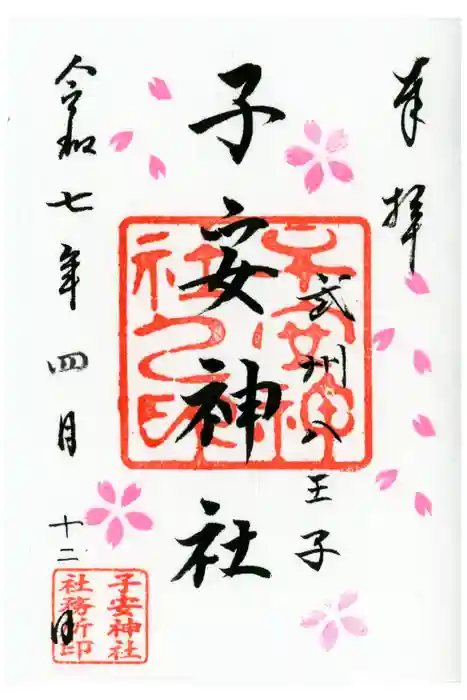 奉拝
武州八王子
子安神社
子安神社之印
令和七年四月十二日
子安神社
社務所印